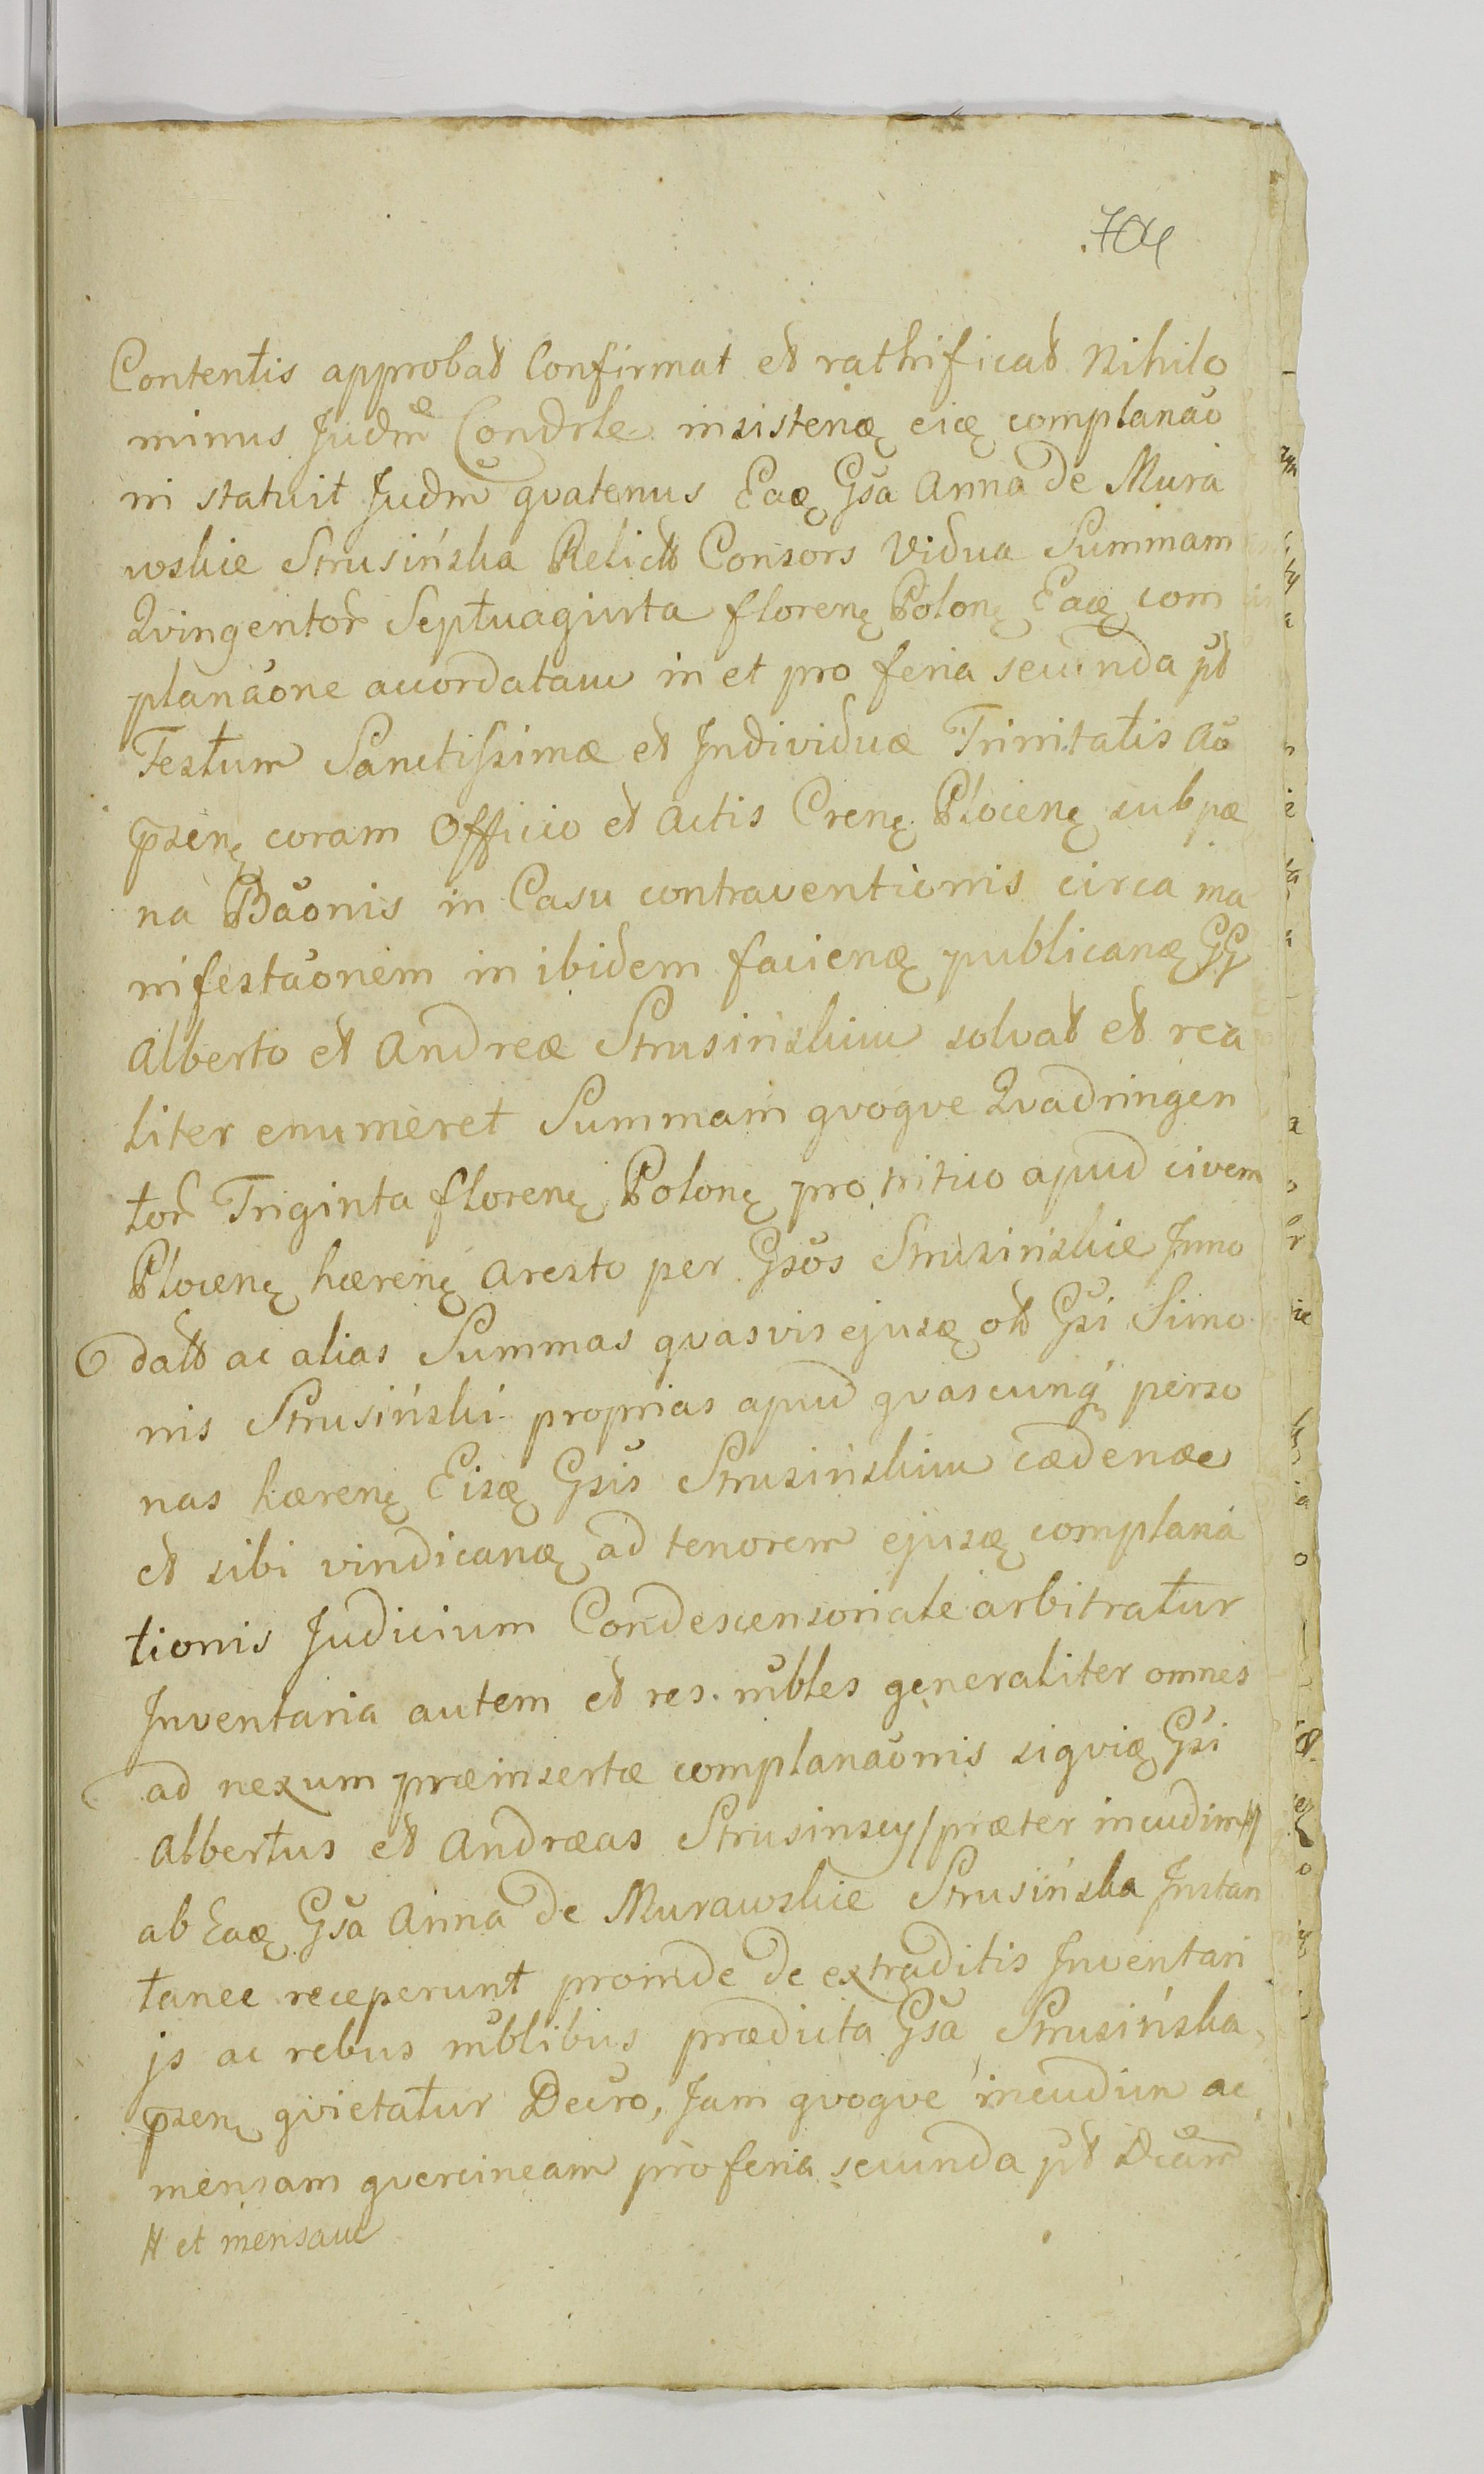 704
Contentis approbat Confirmat et rathificat Nihilo
minus Judm Condrle insistenȩ eiȩ complanao
ni statuit Judm qvatenus Eaȩ Gsa Anna de Mura
wskie Strusińska Relicta Consors Vidua Summam
Qvingentor Septuaginta florenȩ Polonȩ Eaȩ com
planaone accordatam in et pro feria secunda pt
Festum Sanctissimæ et Individuæ Trinitatis Ao
prsenȩ coram Officio et Actis Crenȩ Płocenȩ sub pæ
na Baonis in Casu contraventionis circa ma
nifestaonem in ibidem facienȩ publicanȩ GG
Alberto et Andreæ Strusińskim solvat et rea
liter enumeret Summam qvoqve Qvadringen
tor Triginta florenȩ Polonȩ pro tritico apud civem
Płocenȩ hærenȩ aresto per Gsos Strusińskie Inno
data ac alias Summas qvasvis ejusȩ olt Gsi Simo
nis Strusiński proprias apud qvascunq perso
nas hærenȩ Eisȩ Gsis Strusińskim cædenȩ
et sibi vindicanȩ ad tenorem ejusȩ complana
tionis Judicium Condescensoriale arbitratur
Inventaria autem et res mbles generaliter omnes
ad nexum præinsertæ complanaonis siqviȩ Gsi
Albertus et Andræas Strusinscy/præter incudim #/
ab Eaȩ Gsa Anna de Murawskie Strusińska Instan
tanee receperunt proinde de extraditis Inventari
js ac rebus mblibus prædicta Gsa Strusińska
prsenȩ qvietatur Decro, Jam qvoqve incudim ac
mensam qvercineam pro feria secunda pt Dcam
# et mensam